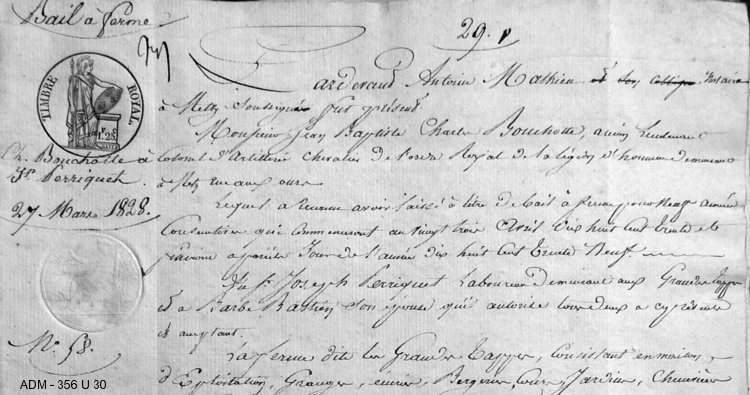 Bail à ferme
29.
TIMBRE ROYAL.
1F.25C
Pardevant Antoine Mathieu et son collègue Notaires
à Metz soussignés fut présent
Monsieur Jean Baptiste Charles Bouchotte, ancien Lieutenant
Colonel d'Artillerie Chevalier de l'ordre Royal de la légion d'honneur demeurant
à Metz rue aux ours
Ch. Bouchotte à
Jh. Perriquet
27 Mars 1828.
Lequel a reconnu avoir laissé à titre de bail à ferme pour Neuf années
Consécutives qui commenceront au vingt trois Avril dix huit cent trente et
finiront à pareil Jour de l'année dix huit cent trente Neuf.
Au Sr. Joseph Perriquet Laboureur demeurant aux Grandes Tappes
et à Barbe Bastien son épouse qu'il autorise tous deux à ce présents
et acceptant.
No. 58.
La ferme dite les Grandes Tappes, Consistant en maison
d'Exploitation, Granges, écuries, Bergeries, Cours, Jardins, Chenevières
ADM - 356 U 30